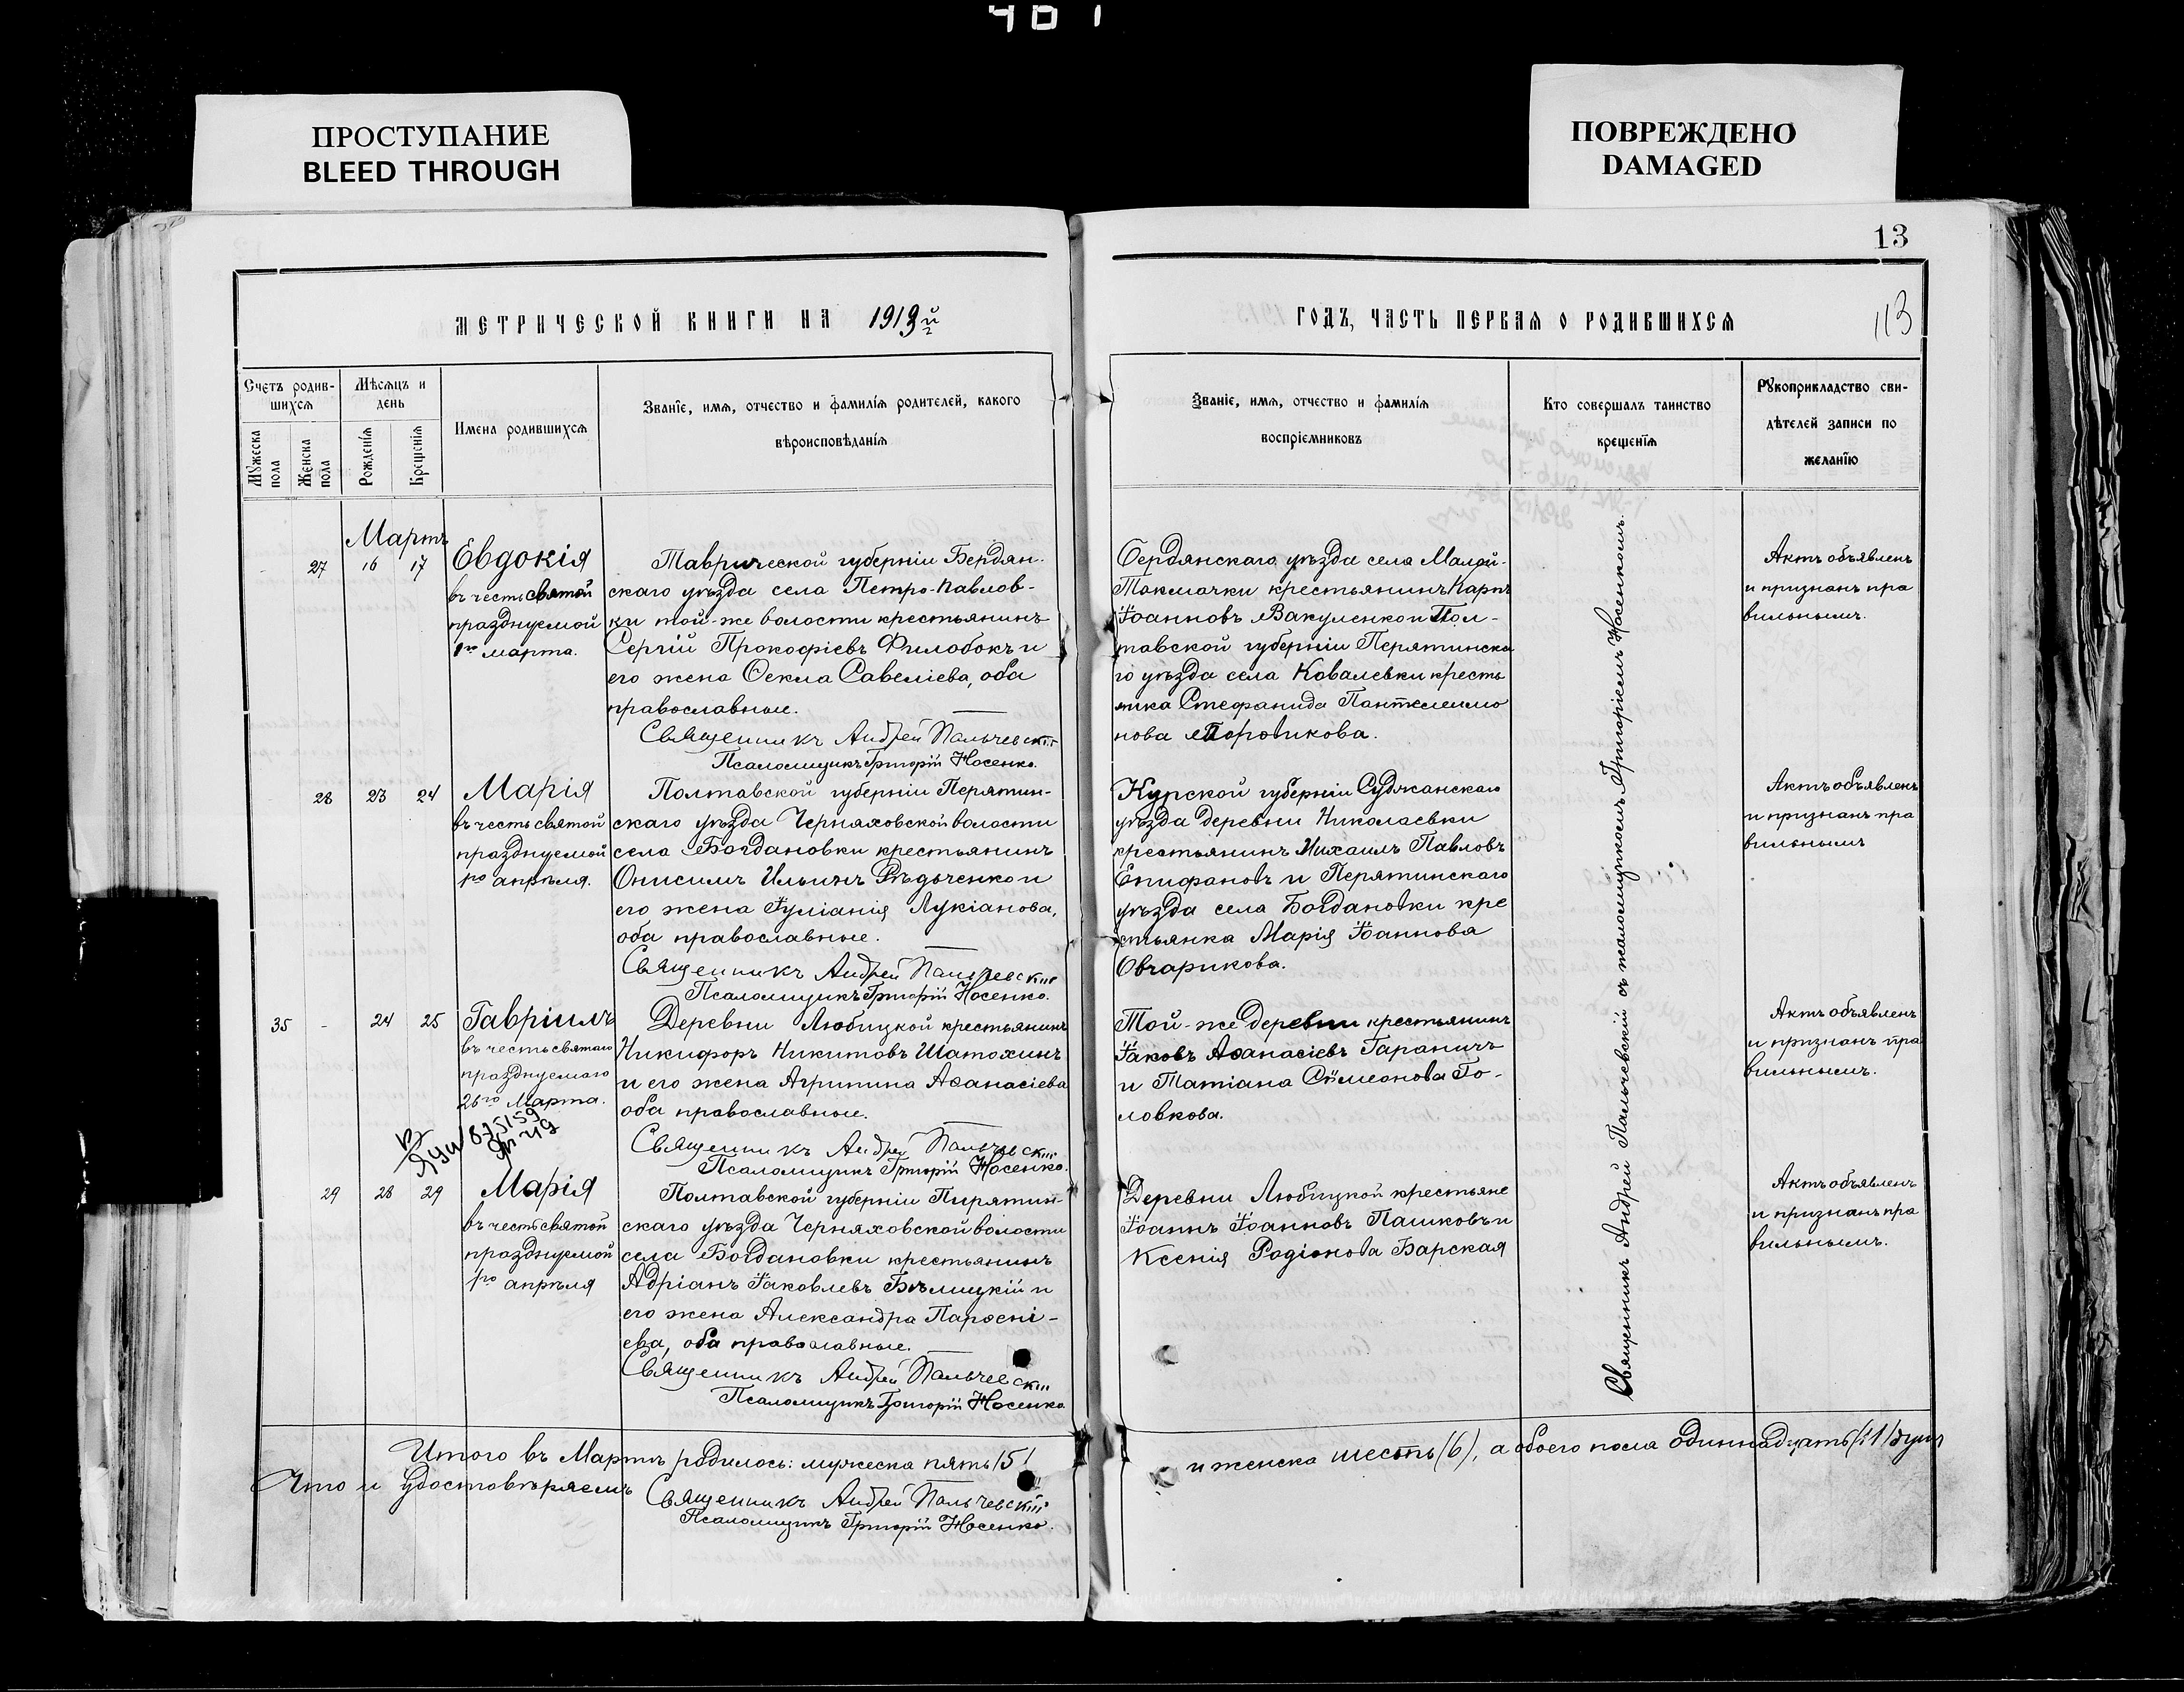 ПРОСТУПАНИЕ
BLEED THROUGH
ПОВРЕЖДЕНО
DAMAGED
13
113
МЕТРИЧЕСКОЙ КНИГИ НА 1913й
Счетъ родив-
шихся
Мѣсяцъ и
день
Мужеска
пола
Женска
пола
Рожденія
Крещенія
Имена родившихся
Званіе, имя, отчество и фамилія родителей, какого
вѣроисповѣданія
Мартъ
27 16 17
Евдокія
въ честь святой
празднуемой
1го марта.
Таврической губерніи Бердян-
скаго уѣзда села Петро-Павлов-
ки той-же волости крестьянинъ
Сергій Прокофіевъ Филобокъ и
его жена Ѳекла Савеліева, оба
православные.
Священникъ Андрей Пальчевскій
Псаломщикъ Григорій Носенко.
28 23 24
Марія
въ честь святой
празднуемой
1го апрѣля.
Полтавской губерніи Перятин-
скаго уѣзда Черняховской волости
села Богдановки крестьянинъ
Онисимъ Ильинъ Рѣдьченко и
его жена Іуліанія Лукіанова,
оба православные.
Священникъ Андрей Пальчевскій
Псаломщикъ Григорій Носенко.
35 - 24 25
Гавріилъ
въ честь святаго
празднуемаго
26го Марта.
Деревни Любицкой крестьянинъ
Никифоръ Никитовъ Шатохинъ
и его жена Агрипина Аѳанасіева
оба православные.
Священникъ Андрей Пальчевскій
Псаломщикъ Григорій Носенко.
29 28 29
Марія
въ честь святой
празднуемой
1го апрѣля
Полтавской губерніи Пирятин-
скаго уѣзда Черняховской волости
села Богдановки крестьянинъ
Адріанъ Іаковлевъ Бѣлицкій и
его жена Александра Парѳені-
ева, оба православные.
Священникъ Андрей Пальчевскій
Псаломщикъ Григорій Носенко
Итого въ Мартѣ родилось: мужеска пять (5)
Что и удостовѣряемъ
Священникъ Андрей Пальчевскій
Псаломщикъ Григорій Носенко.
ГОДЪ, ЧАСТЬ ПЕРВАЯ О РОДИВШИХСЯ
Званіе, имя, отчество и фамилія
воспріемниковъ
Кто совершалъ таинство
крещенія
Рукоприкладство сви-
дѣтелей записи по
желанію
Бердянскаго уѣзда села Малой-
Токмачки крестьянинъ Карпъ
Іоанновъ Вакуленко и Пол-
тавской губерніи Перятинска
го уѣзда села Ковалевки кресть
янка Стефанида Пантелеимо
нова
Актъ объявленъ
и признанъ пра
вильнымъ.
Курской губерніи Суджанскаго
уѣзда деревни Николаевки
крестьянинъ Михаилъ Павловъ
Епифановъ и Перятинскаго
уѣзда села Богдановки кре
стьянка Марія Іоаннова
Овчарикова.
Актъ объявленъ
и признанъ пра
вильнымъ
Той-же деревни крестьянинъ
Іаковъ Аѳанасіевъ Гараничъ
и Татіана Сѵмеонова Го-
ловкова.
Актъ объявленъ
и признанъ пра
вильнымъ.
Деревни Любицкой крестьяне
Іоаннъ Іоанновъ Пашковъ и
Ксенія Родіонова Барская
Актъ объявленъ
и признанъ пра
вильнымъ.
Священникъ Андрей Пальчевскій съ псаломщикомъ Григоріемъ Носенкомъ.
и женска шесть (6), а обоего пола одиннадцать (11) душъ